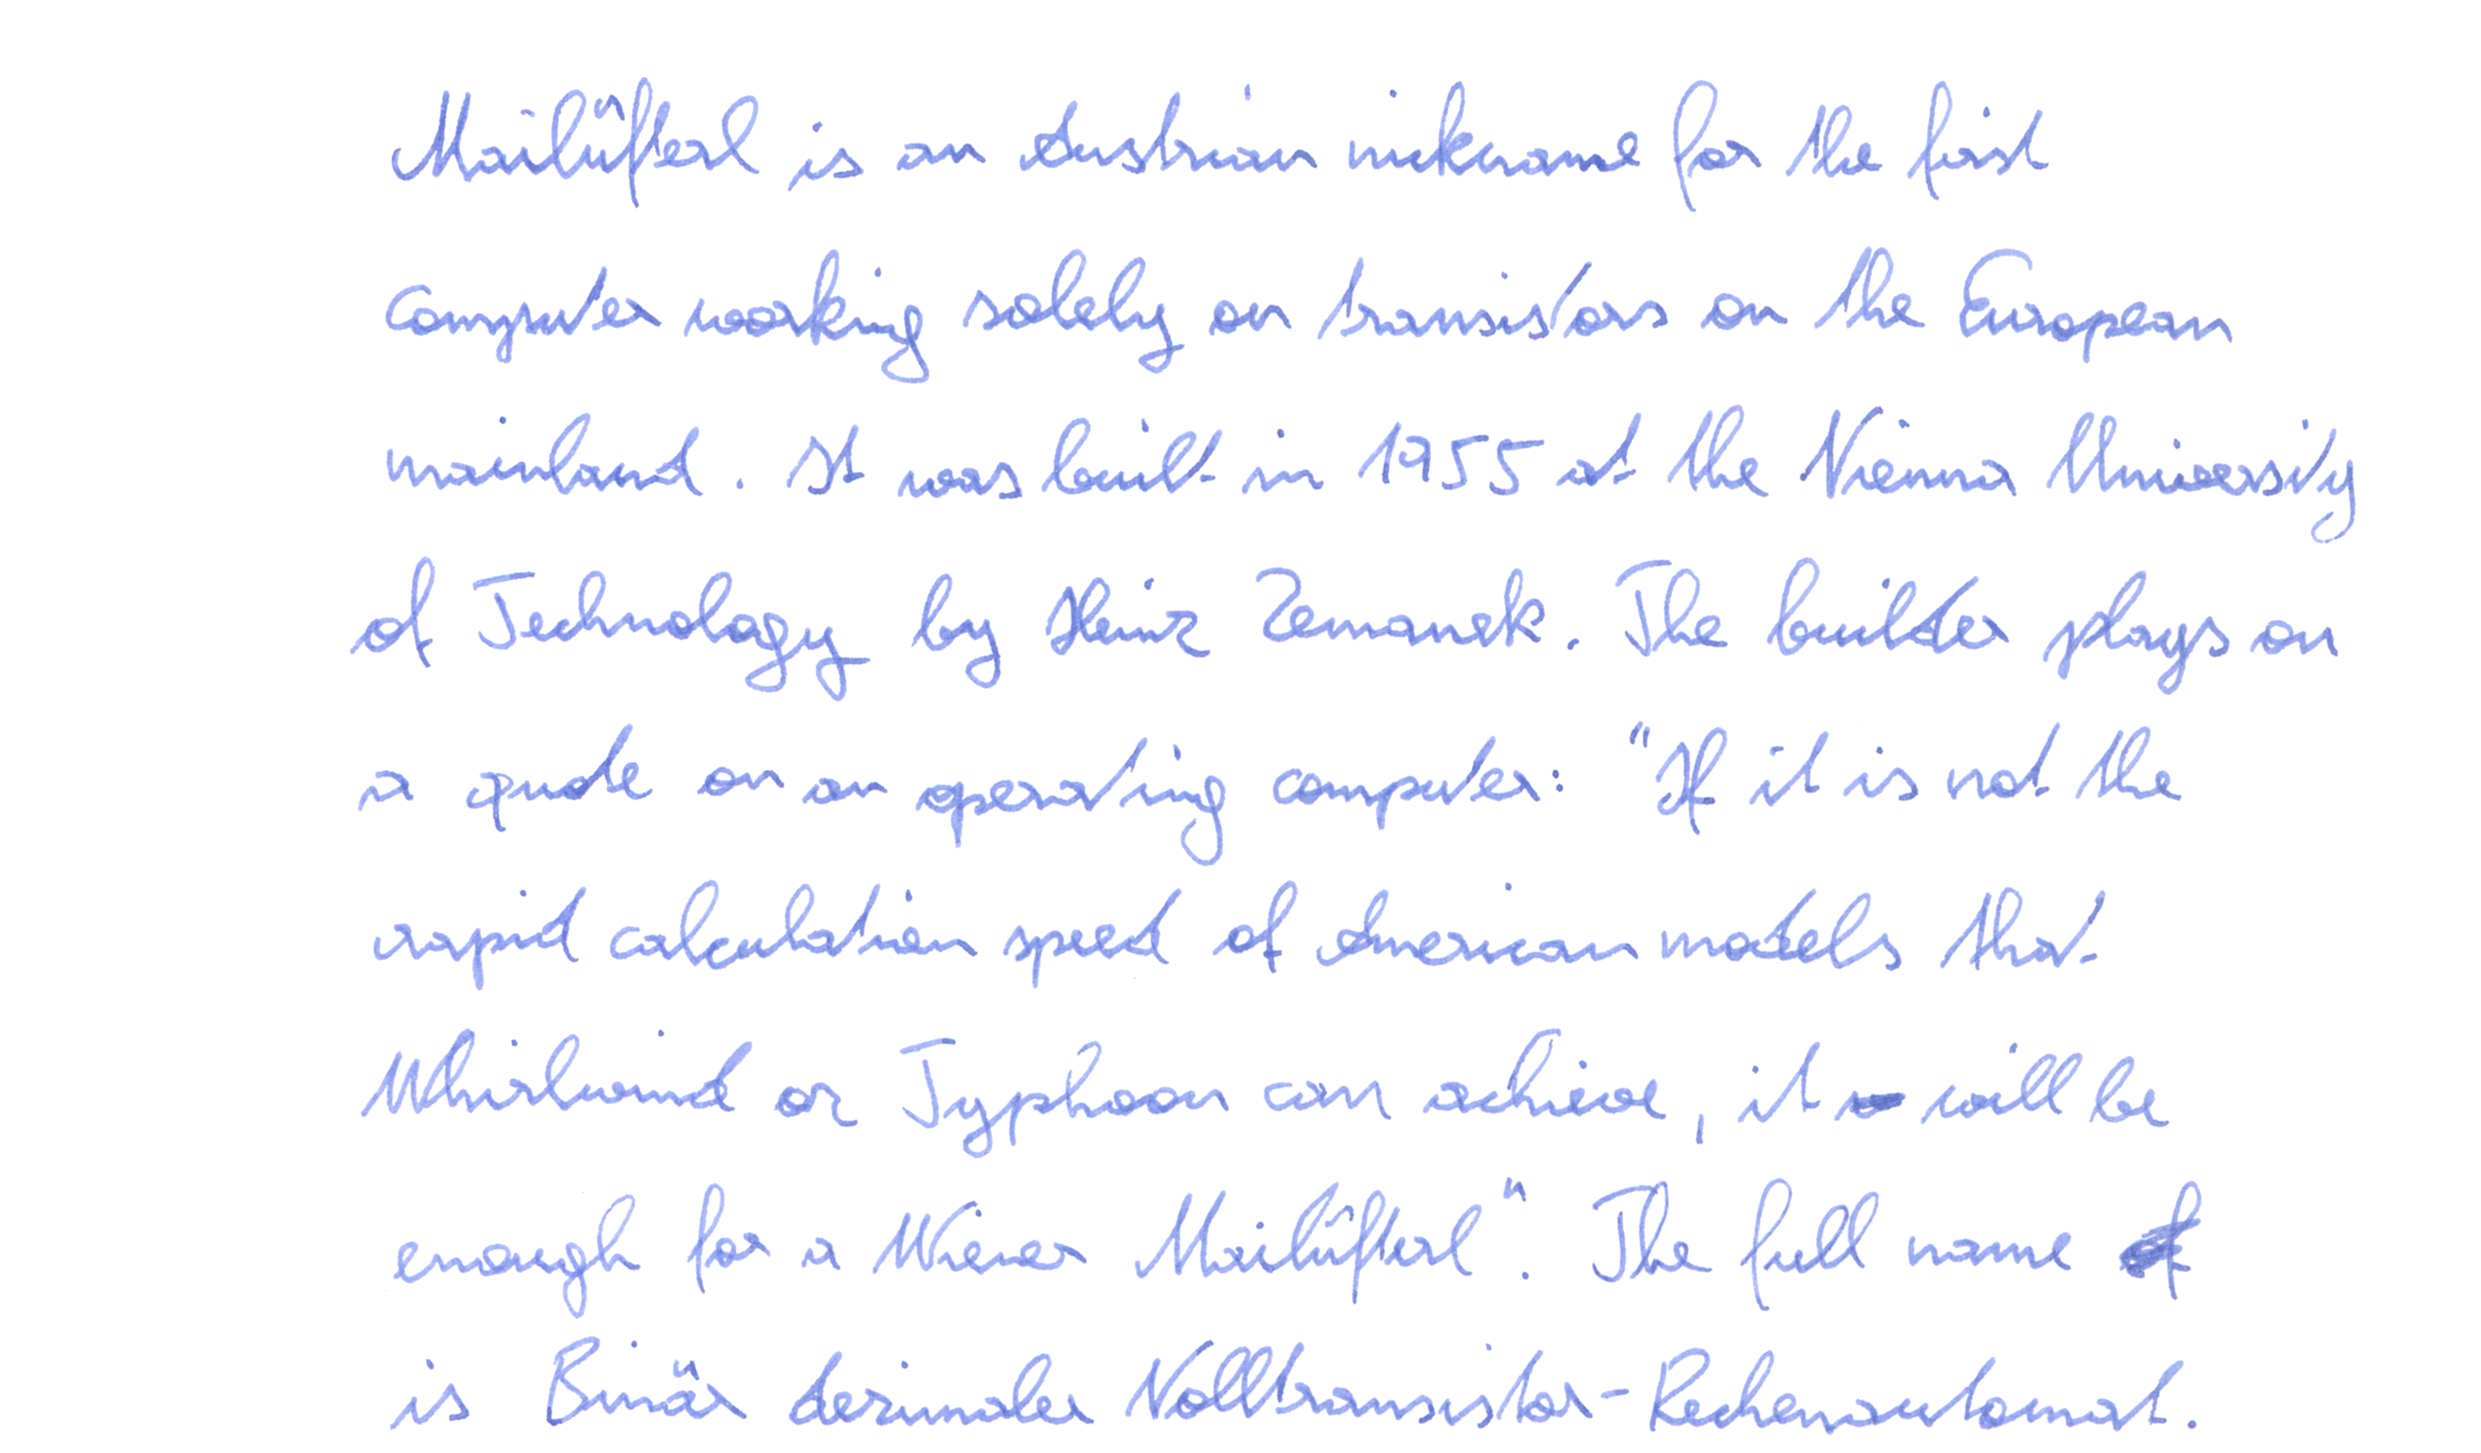 Mailüfterl is an Austrian nickname for the first
computer working solely on transistors on the European
mainland. It was built in 1955 at the Vienna University
of Technology by Heinz Zemanek. The builder plays on
a quote on an operating computer: "If it is not the
rapid calculation speed of American models that
Whirlwind or Typhoon can achieve, it will be
enough for a Wiener Mailüfterl". The full name
is Binär dezimaler Volltransistor-Rechenautomat.